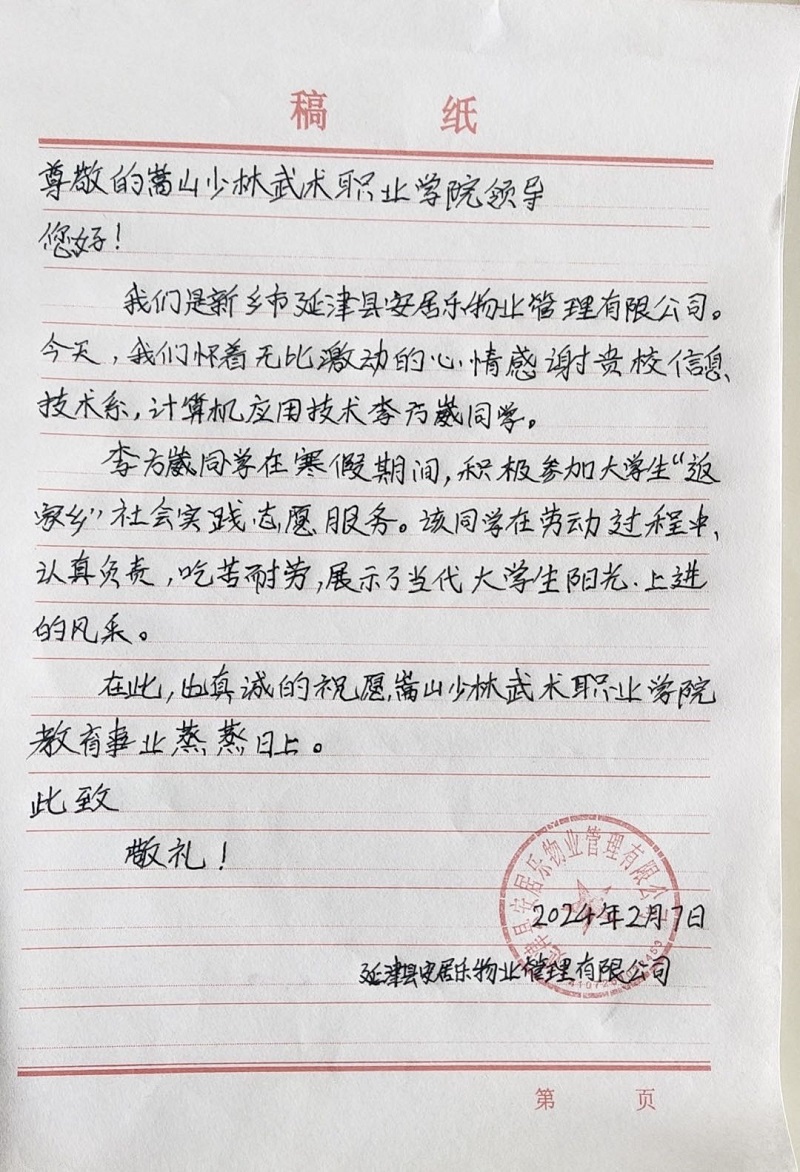 稿 纸
尊敬的嵩山少林武术职业学院领导
您好！
我们是新乡市延津县安居乐物业管理有限公司。
今天，我们怀着无比激动的心情感谢贵校信息
技术系，计算机应用技术李方崴同学。
李方崴同学在寒假期间，积极参加大学生“返
家乡”社会实践志愿服务。该同学在劳动过程中、
认真负责，吃苦耐劳，展示了当代大学生阳光、上进
的风采。
在此，也真诚的祝愿嵩山少林武术职业学院
教育事业蒸蒸日上。
此致
敬礼！
津县安居乐物业管理有限公
2024年2月7日
延津县安居乐物业管理有限公司
第 页